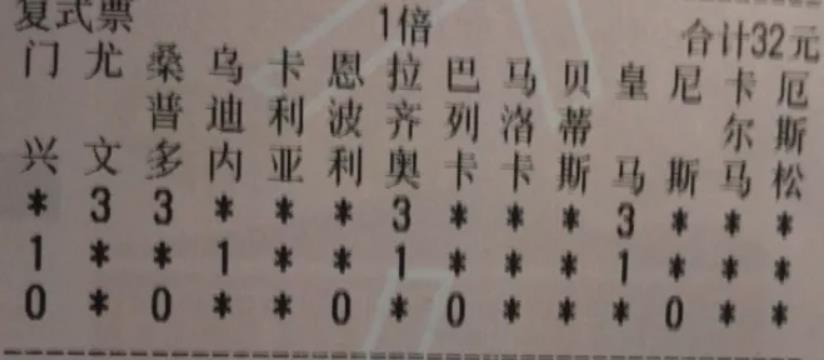 复式票 1倍 合计32元
门兴 尤文 桑普多 乌迪内 卡利亚 恩波利 拉齐奥 巴列卡 马洛卡 贝蒂斯 皇马 尼斯 卡尔马 厄斯松
* 3 3 * * * 3 * * * 3 * * *
1 * * 1 * * 1 * * * 1 * * *
0 * 0 * * 0 * 0 * * * 0 * *